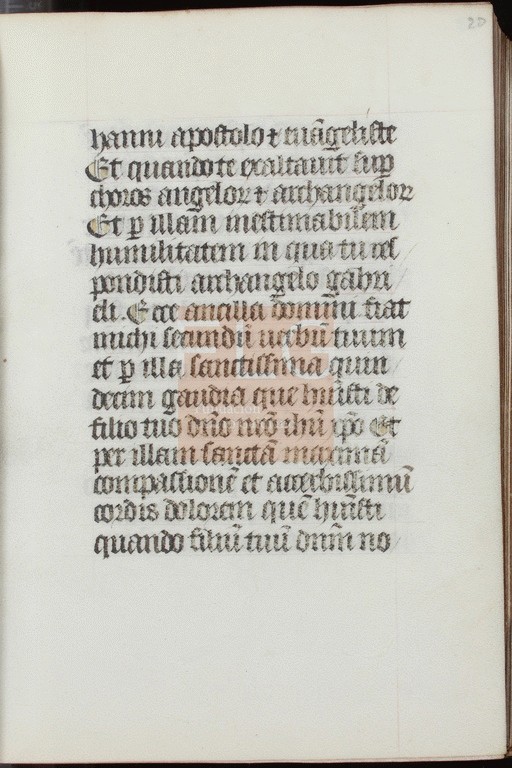 20
hanni apostolo ⁊ euāgeliste
Et quando te exaltauit sup
choros angeloꝝ ⁊ archangeloꝝ
Et ꝑ illam inestimabilem
humilitatem in qua tu res
pondisti archangelo gabri
eli. Ecce ancilla domini fiat
michi secundū uerbū tuum
et ꝑ illa sanctissima quin
decim gaudia que huisti de
filio tuo dn̄o nr̄o ih̄u xp̄o Et
per illam sanctā maximā
compassionē et acerbissimū
cordis dolorem quē huisti
quando filiū tuū dn̄m no